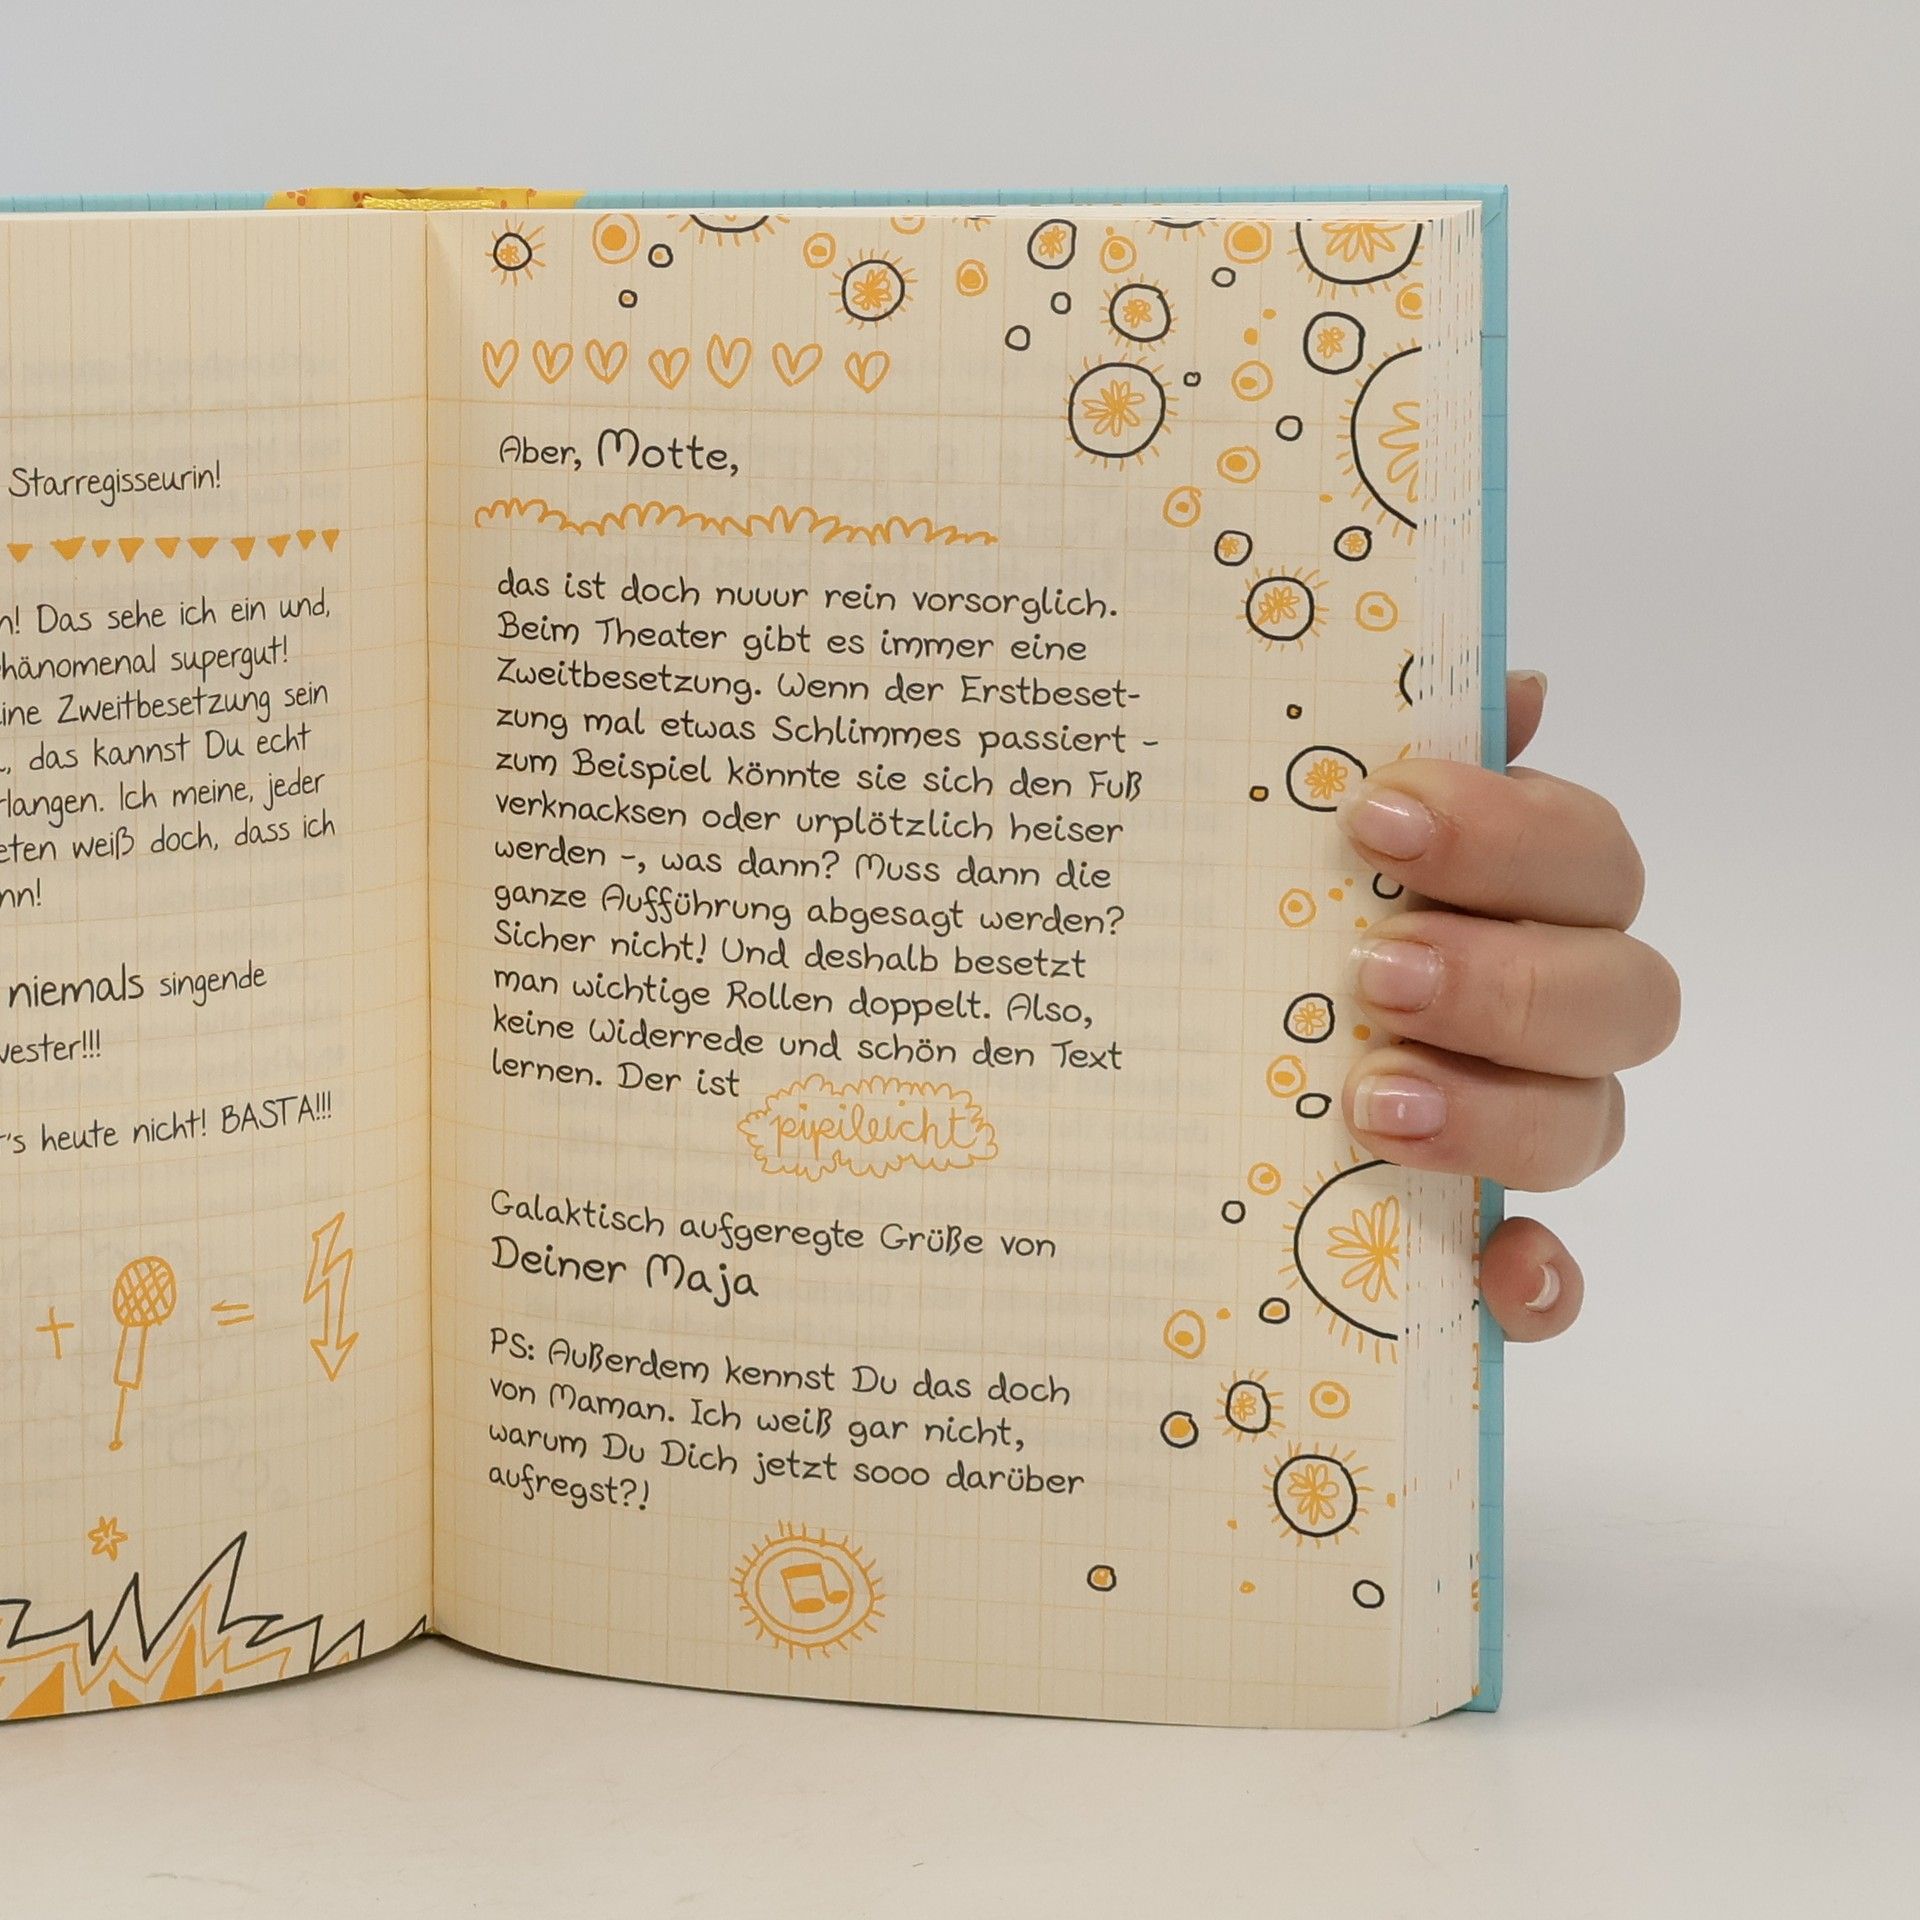 Starregisseurin!
Das sehe ich ein und,
supergut!
Zweitbesetzung sein
das kannst Du echt
Ich meine, jeder
weiß doch, dass ich
niemals singende
heute nicht! BASTA!!!
Aber, Motte,
das ist doch nuuur rein vorsorglich.
Beim Theater gibt es immer eine
Zweitbesetzung. Wenn der Erstbeset-
zung mal etwas Schlimmes passiert -
zum Beispiel könnte sie sich den Fuß
verknacksen oder urplötzlich heiser
werden -, was dann? Muss dann die
ganze Aufführung abgesagt werden?
Sicher nicht! Und deshalb besetzt
man wichtige Rollen doppelt. Also,
keine Widerrede und schön den Text
lernen. Der ist
pipileicht
Galaktisch aufgeregte Grüße von
Deiner Maja
PS: Außerdem kennst Du das doch
von Maman. Ich weiß gar nicht,
warum Du Dich jetzt sooo darüber
aufregst?!